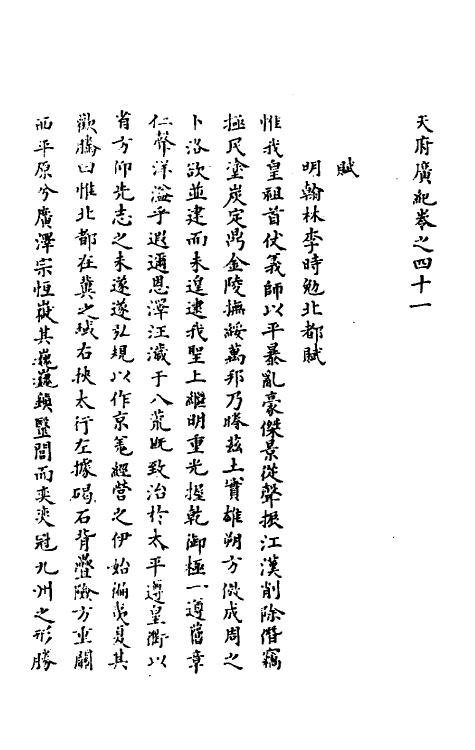 天府廣紀卷之四十一
賦
明翰林李時勉北都賦
惟我皇祖首仗義師以平暴亂豪傑景從聲振江漢削除僭竊
極民塗炭定鼎金陵撫綏萬邦乃睠茲土實雄朔方倣成周之
卜洛欲並建而未遑逮我聖上繼明重光握乾御極一遵舊章
仁聲洋溢乎遐邇恩澤汪濊于八荒旣致治於太平遵皇衢以
省方仰先志之未遂遂弘規以作京爰經營之伊始徧夷夏其
歡騰曰惟北都在冀之域右挾太行左據碣石背疊險方重關
面平原兮廣澤宗恒嶽其巍巍鎮毉閭而奕奕冠九州之形勝